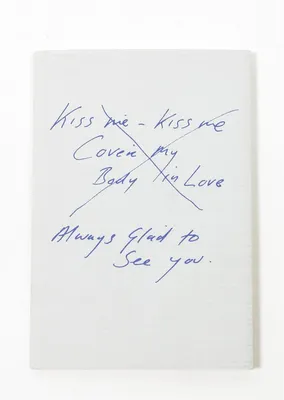 Kiss me - Kiss me
Cover my
Body in Love
Always Glad to
See you.